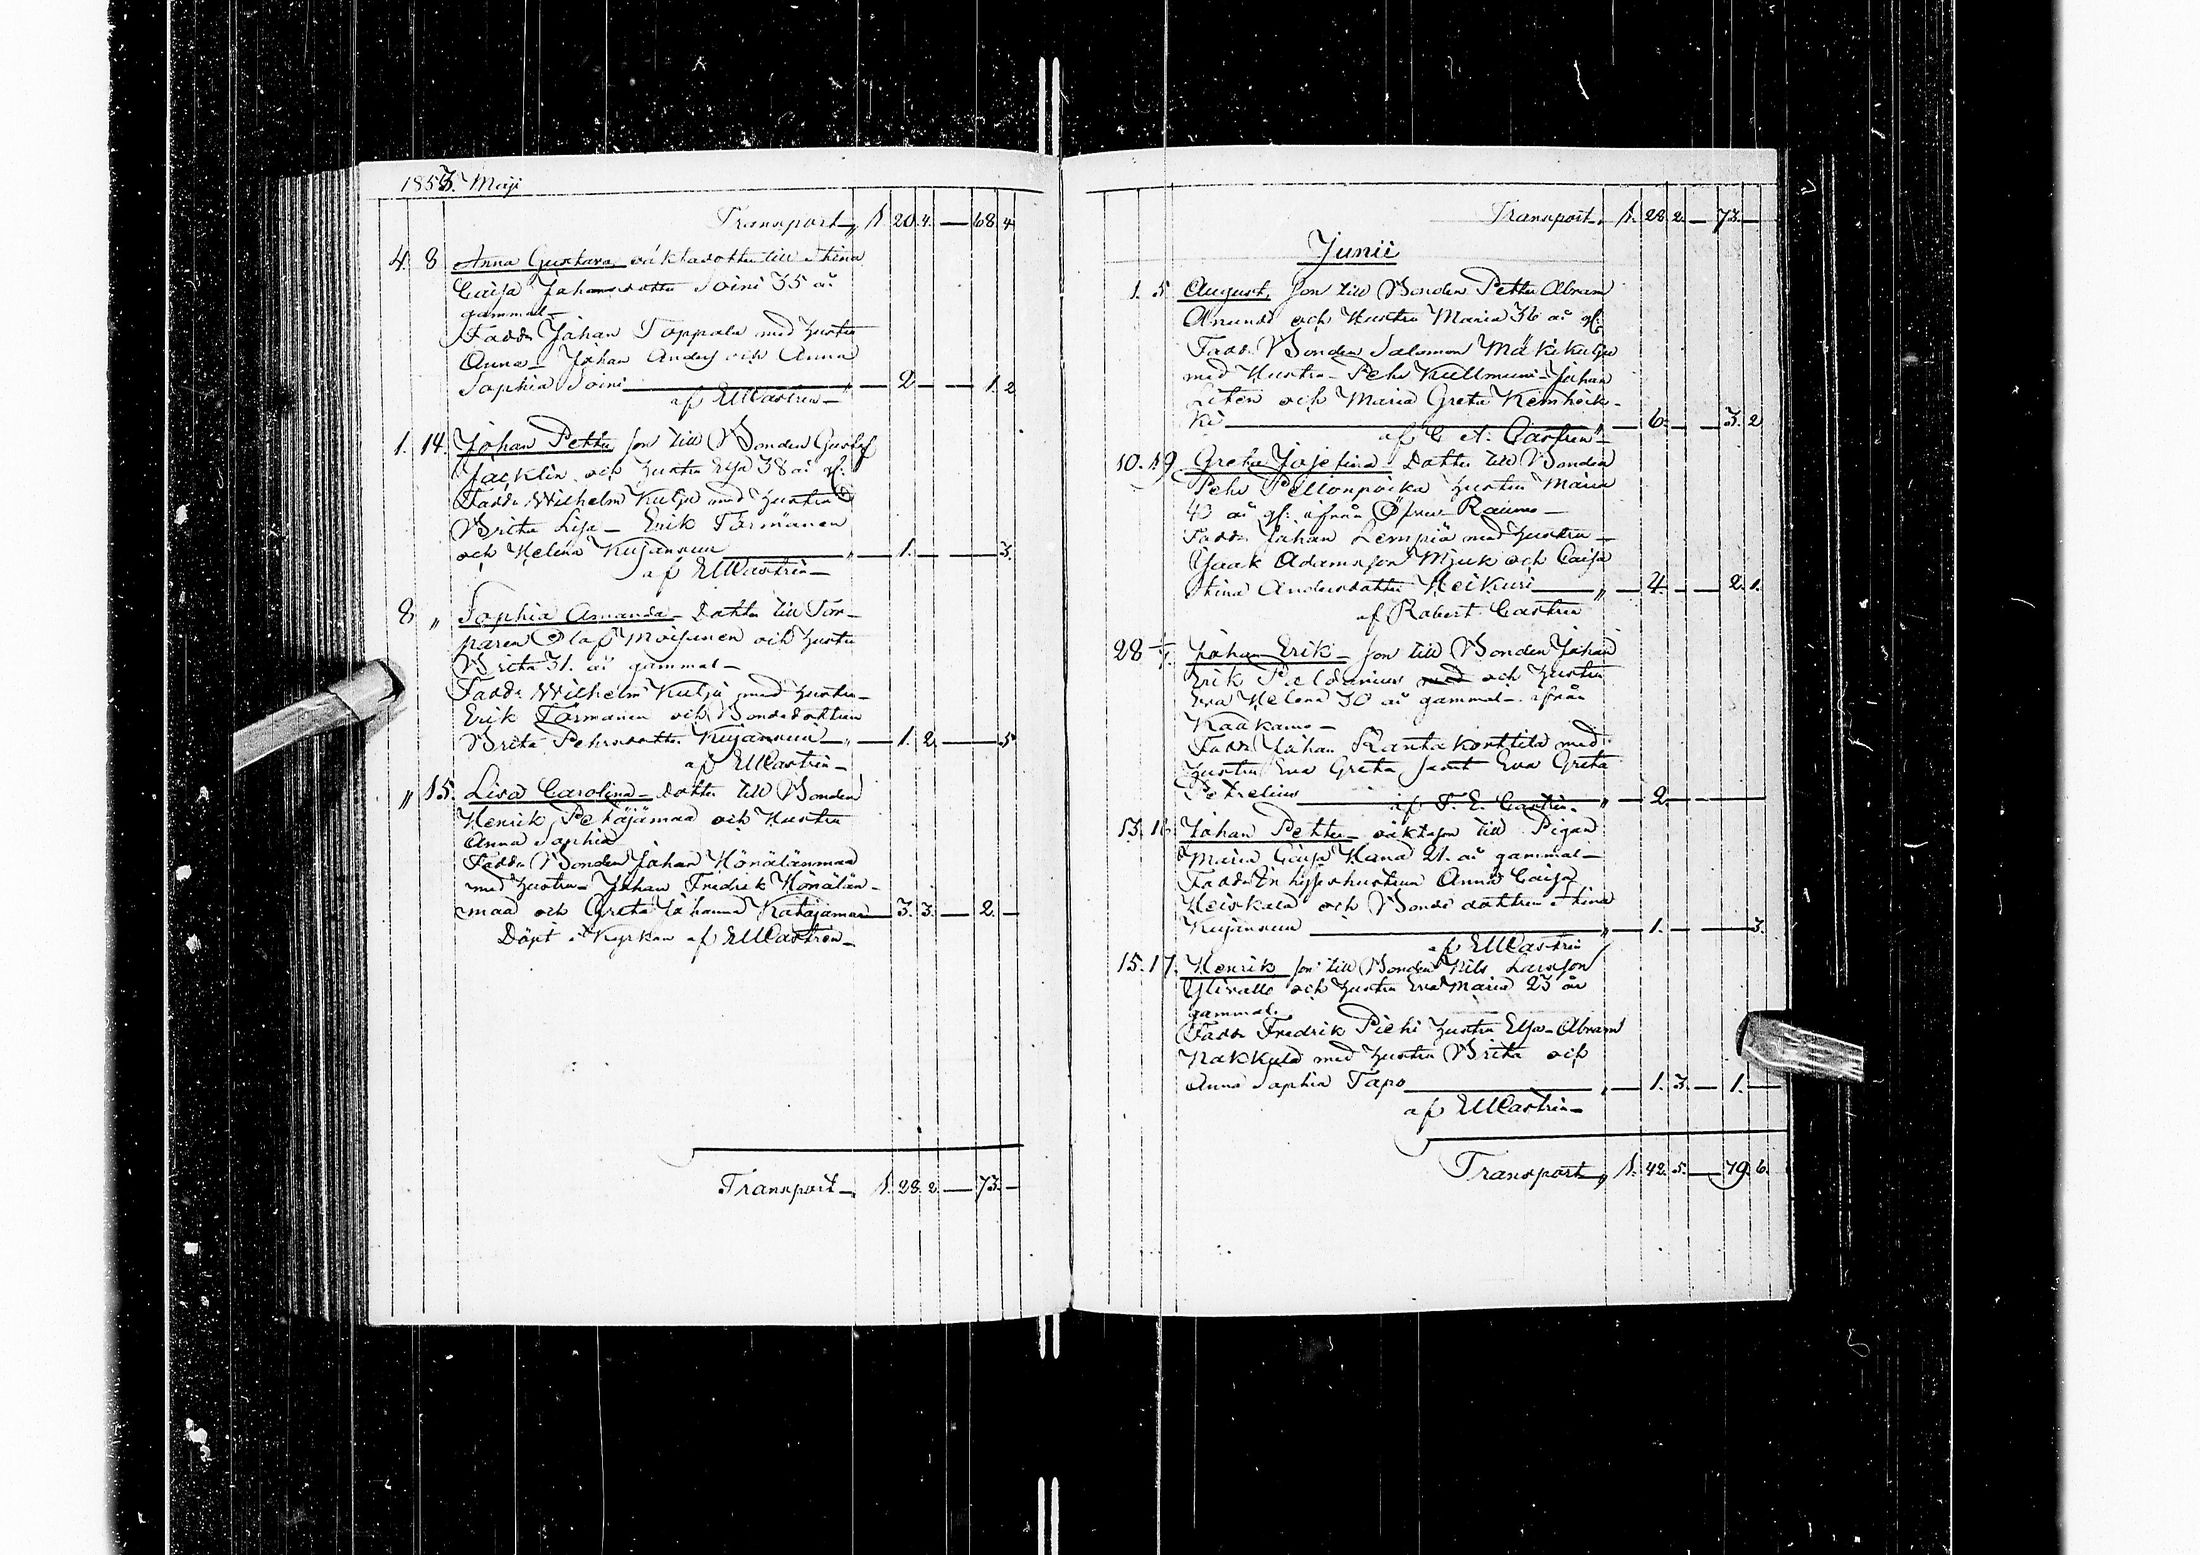 1853. Maji
Transport „ 1. 20. 4. — 68 4
4. 8 Anna Gustava, oäktadotter till Stina
Caisa Johansdotter Soini 35 år
gammal—
Fadd: Johan Toppala med hustru
Anna — Johan Anders och Anna
Sophia Soini „ — 2 — — 1. 2
af EMCastrén—
1. 14. Johan Petter son till Bonden Gustaf
Jacklin och hustru Elsa 38 år gl:
Fadd: Wilhelm Kulju med hustru
Brita Lisa — Erik Törmänen
och Helena Kujansuu „ — 1. — — 3.
af EMCastrén—
8 „ Sophia Amanda — Dotter till Tor-
paren Olof Moisanen och hustru
Brita 31. år gammal—
Fadd: Wilhelm Kulju med hustru—
Erik Törmänen och Bondedottren
Brita Pehrsdotter Kujansuu — „ — 1. 2 — 5
af EMCastrén—
„ 15. Lisa Carolina — Dotter till Bonden
Henrik Petäjämaa och Hustru
Anna Sophia
Fadd: Bonden Johan Hönälänmaa
med hustru — Johan Fredrik Hönälän-
maa och Greta Johanna Katajamaa — 3. 3. — 2. —
Döpt i Kyrkan af EMCastrén—
Transport — „ 1. 28. 2 — 73. —
Transport „ 1. 28 2. — 73. —
Junii
1. 5 August, son till Bonden Petter Abram
Anundi och Hustru Maria 36 år gl:
Fadd: Bonden Salomon Mäkikulju
med Hustru — Pehr Kullmuni — Johan
Liten och Maria Greta Kemheik-
ki „ — 6. — — 3. 2
af C. A. Castrén—
10. 19 Greta Josefina — Dotter till Bonden
Pehr Pellonpoika hustru Maria
43 år gl: ifrån Öfver Raumo—
Fadd: Johan Lempiä med hustru—
Isaak Adamsson Mjuk och Caisa
Stina Andersdotter Heikuri „ — 4. — — 2. 1.
af Robert Castrén
28 Johan Erik — son till Bonden Johan
Erik med och hustru
Eva Helena 30 år gammal — ifrån
Kaakamo—
Fadd: Johan Rantakorttila med
hustru Eva Greta samt Eva Greta
Petrelius „ — 2. — —
af F. E. Castrén.
13. 16 Johan Petter — oäktason till Pigan
Maria Caisa Hana 21. år gammal—
Fadd: Inhyseshustrun Anna Caisa
Heiskala och Bonde dottren Stina
Kujansuu „ — 1. — — 3.
af EMCastrén
15. 17. Henrik son till Bonden Nils Larsson
Ylivalle och hustru Eva Maria 23 år
gammal.
Fadd: Fredrik Piehi hustru Elsa — Abram
Nakkula med hustru Brita och
Anna Sophia Tapo „ — 1. 3. — 1. —
af EMCastrén—
Transport „ 1. 42. 5. — 79. 6.